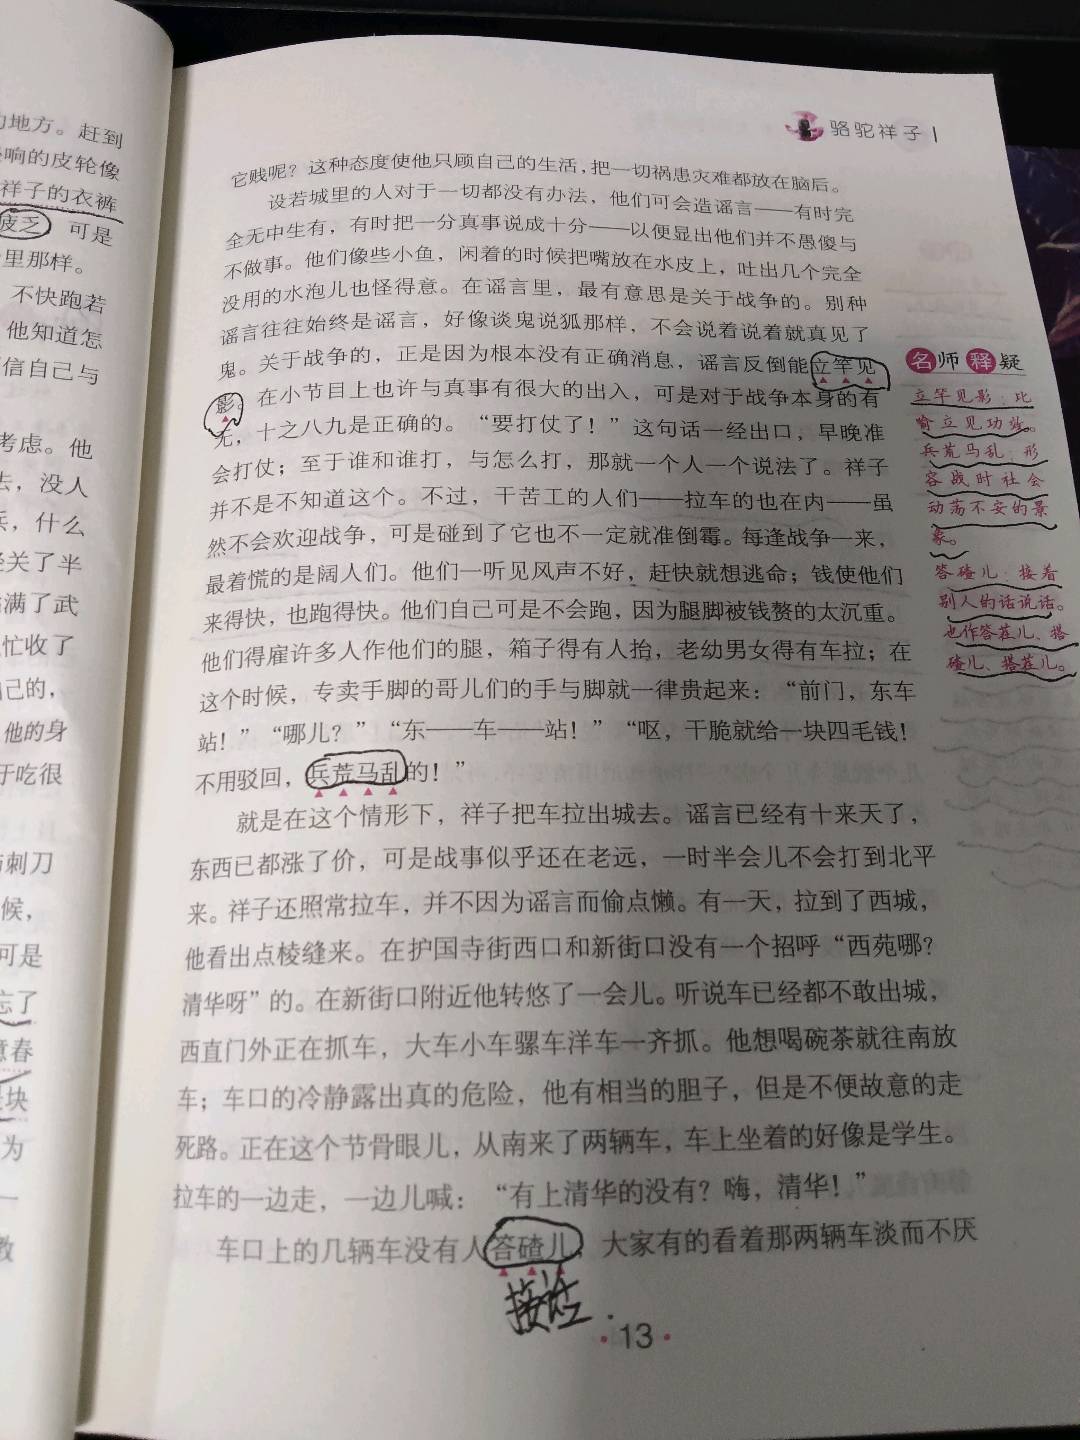 的地方。赶到
响的皮轮像
祥子的衣裤
疲乏，可是
里那样。
不快跑若
他知道怎
信自己与
考虑。他
去，没人
兵，什么
关了半
满了武
忙收了
己的，
他的身
于吃很
刺刀
候，
可是
忘了
意春
块
为
一
教
骆驼祥子
它贱呢？这种态度使他只顾自己的生活，把一切祸患灾难都放在脑后。
设若城里的人对于一切都没有办法，他们可会造谣言——有时完
全无中生有，有时把一分真事说成十分——以便显出他们并不愚傻与
不做事。他们像些小鱼，闲着的时候把嘴放在水皮上，吐出几个完全
没用的水泡儿也怪得意。在谣言里，最有意思是关于战争的。别种
谣言往往始终是谣言，好像谈鬼说狐那样，不会说着说着就真见了
鬼。关于战争的，正是因为根本没有正确消息，谣言反倒能立竿见
影。在小节目上也许与真事有很大的出入，可是对于战争本身的有
无，十之八九是正确的。“要打仗了！”这句话一经出口，早晚准
会打仗；至于谁和谁打，与怎么打，那就一个人一个说法了。祥子
并不是不知道这个。不过，干苦工的人们——拉车的也在内——虽
然不会欢迎战争，可是碰到了它也不一定就准倒霉。每逢战争一来，
最着慌的是阔人们。他们一听见风声不好，赶快就想逃命；钱使他们
来得快，也跑得快。他们自己可是不会跑，因为腿脚被钱赘的太沉重。
他们得雇许多人作他们的腿，箱子得有人抬，老幼男女得有车拉；在
这个时候，专卖手脚的哥儿们的手与脚就一律贵起来：“前门，东车
站！”“哪儿？”“东——车——站！”“呕，干脆就给一块四毛钱！
不用驳回，兵荒马乱的！”
就是在这个情形下，祥子把车拉出城去。谣言已经有十来天了，
东西已都涨了价，可是战事似乎还在老远，一时半会儿不会打到北平
来。祥子还照常拉车，并不因为谣言而偷点懒。有一天，拉到了西城，
他看出点棱缝来。在护国寺街西口和新街口没有一个招呼“西苑哪？
清华呀”的。在新街口附近他转悠了一会儿。听说车已经都不敢出城，
西直门外正在抓车，大车小车骡车洋车一齐抓。他想喝碗茶就往南放
车；车口的冷静露出真的危险，他有相当的胆子，但是不便故意的走
死路。正在这个节骨眼儿，从南来了两辆车，车上坐着的好像是学生。
拉车的一边走，一边儿喊：“有上清华的没有？嗨，清华！”
车口上的几辆车没有人答碴儿，大家有的看着那两辆车淡而不厌
接话
·13·
名师释疑
立竿见影：比
喻立见功效。
兵荒马乱：形
容战时社会
动荡不安的景
象。
答碴儿：接着
别人的话说话。
也作答茬儿、搭
碴儿、搭茬儿。